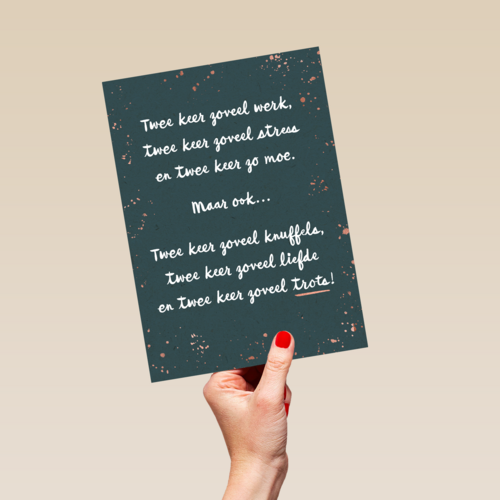 Twee keer zoveel werk,
twee keer zoveel stress
en twee keer zo moe.
Maar ook...
Twee keer zoveel knuffels,
twee keer zoveel liefde
en twee keer zoveel trots!